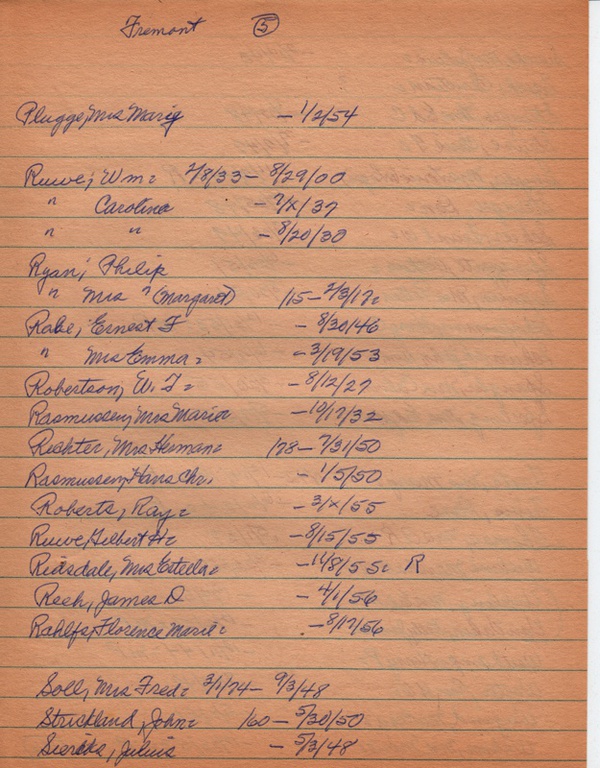 Fremont 5
Plugge, Mrs Marie - 1/2/54
Ruwe, Wm: 2/8/33 - 8/29/00
" Carolina - 7/x/37
" " - 8/20/30
Ryan, Philip
" Mrs " (Margaret) 115 - 2/3/17:
Rabe, Ernest F - 8/30/46
" Mrs Emma: - 3/19/53
Robertson, W. T: - 8/12/27
Rasmussen, Mrs Marie - 10/17/32
Richter, Mrs Herman: 178 - 7/31/50
Rasmussen, Hans Chr. - 1/5/50
Roberts, Ray: - 3/x/55
Ruwe, Gilbert H: - 8/15/55
Mrs Estella: - 11/8/55: R
Reeh, James D - 4/1/56
Rahlfs, Florence Marie: - 8/17/56
Soll, Mrs Fred: 3/1/74 - 9/3/48
Strickland, John: 160 - 5/30/50
Julius - 5/3/48